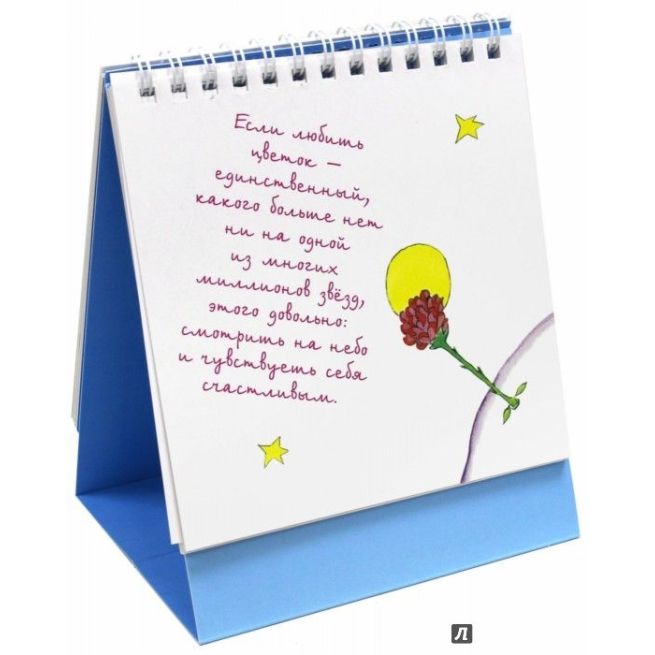 Если любить
цветок —
единственный,
какого больше нет
ни на одной
из многих
миллионов звёзд,
этого довольно:
смотришь на небо
и чувствуешь себя
счастливым.
Л